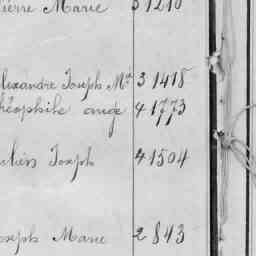 Pierre Marie 3 1210
Alexandre Joseph Mie 3 1418
Théophile ange 4 1773
Julien Joseph 4 1504
Joseph Marie 2 843